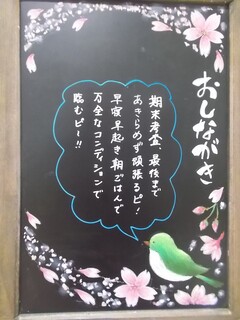 おしながき
期末考査、最後まで
あきらめず頑張るピ!
早寝早起き朝ごはんで
万全なコンディションで
臨むピ〜!!